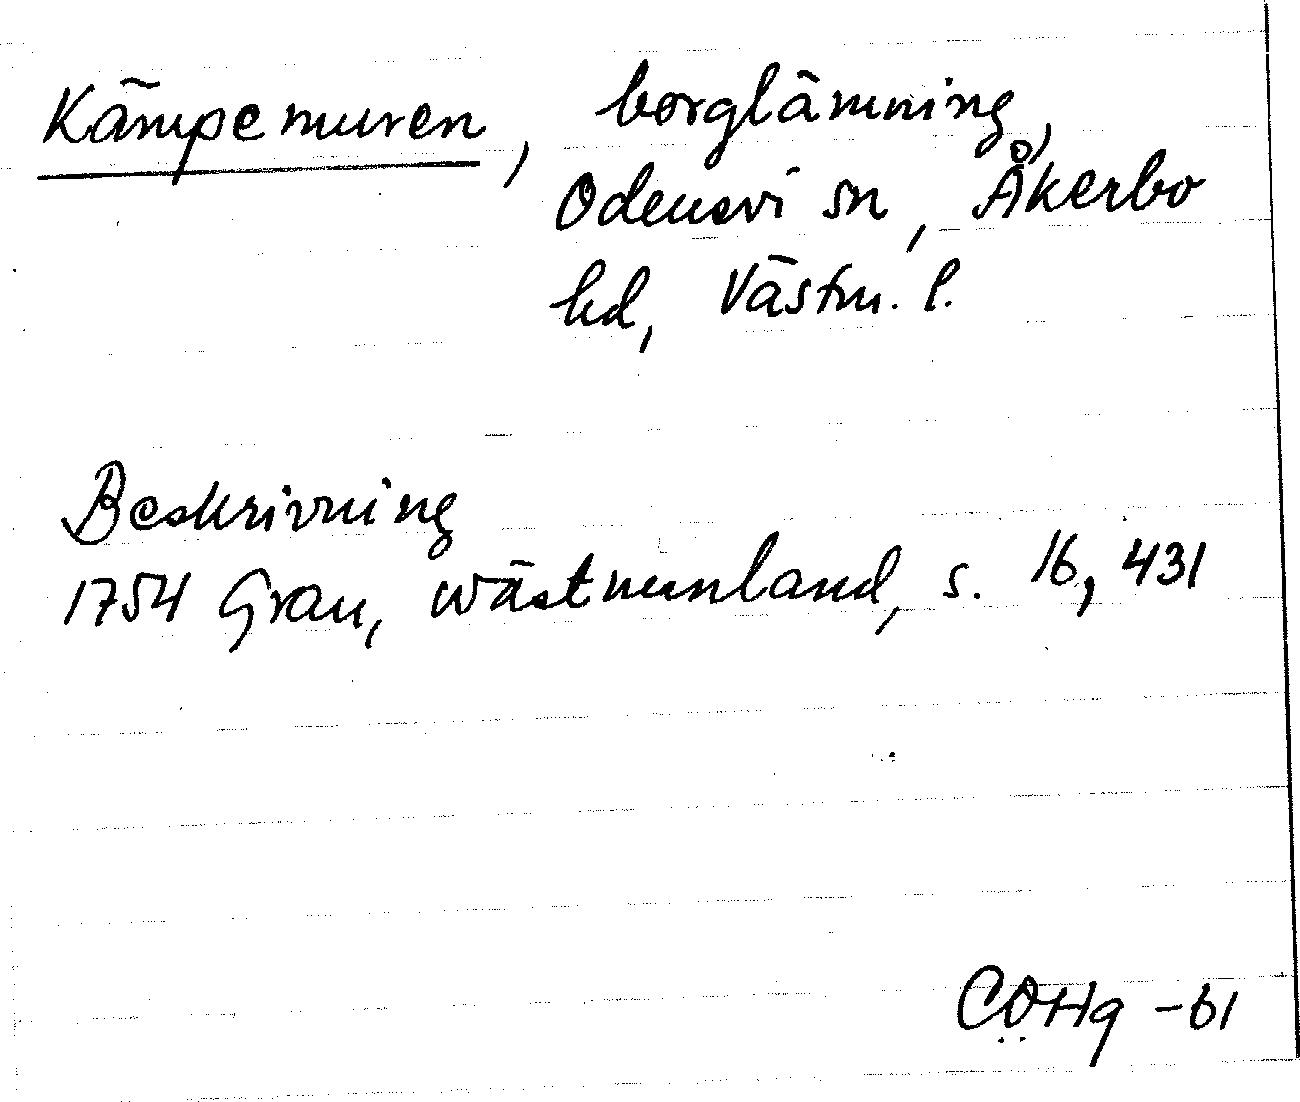 Kämpemuren, borglämning,
Odensvi sn, Åkerbo
hd, Västm. l.
Beskrivning
1754 Grau, Wästmanland, s. 16, 431
COHg -61